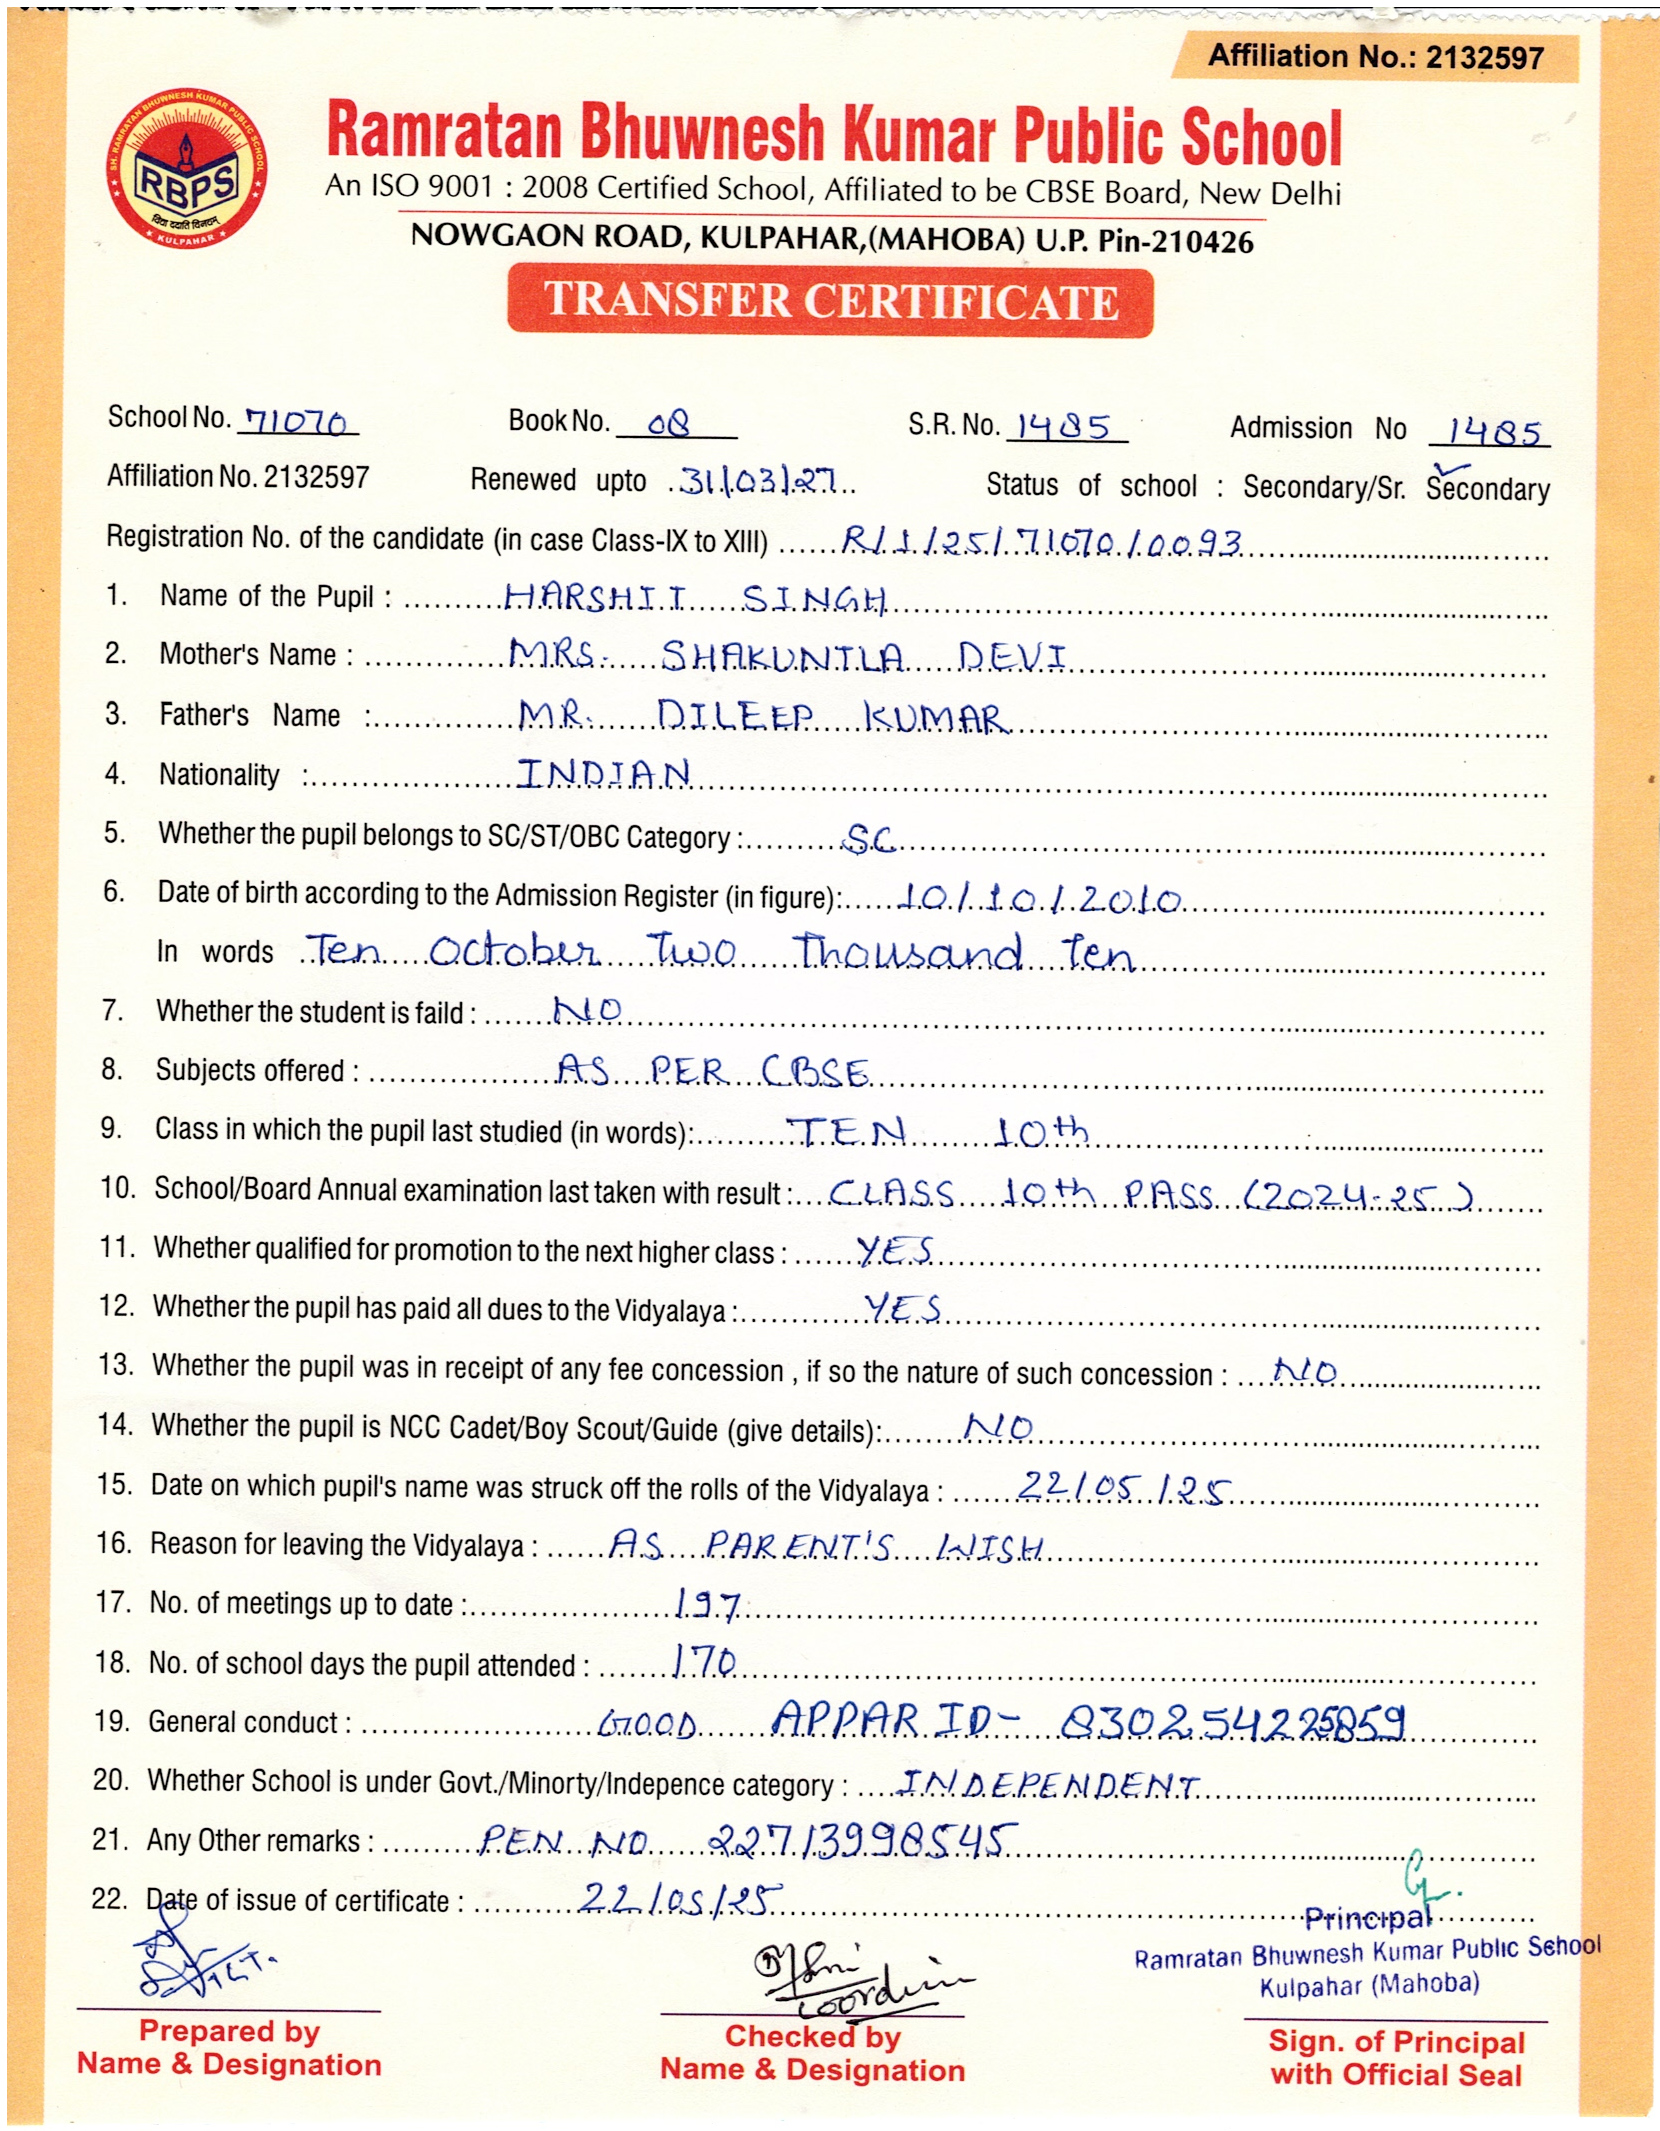 Affiliation No.: 2132597
SH. RAMRATAN BHUWNESH KUMAR PUBLIC SCHOOL
RBPS
विद्या ददाति विनयम्
KULPAHAR
Ramratan Bhuwnesh Kumar Public School
An ISO 9001 : 2008 Certified School, Affiliated to be CBSE Board, New Delhi
NOWGAON ROAD, KULPAHAR,(MAHOBA) U.P. Pin-210426
TRANSFER CERTIFICATE
School No. 71070 Book No. 08 S.R. No. 1485 Admission No 1485
Affiliation No. 2132597 Renewed upto 31/03/27 Status of school : Secondary/Sr. Secondary
Registration No. of the candidate (in case Class-IX to XIII) R/1/25/71070/0093
1. Name of the Pupil : HARSHIT SINGH
2. Mother's Name : MRS. SHAKUNTLA DEVI
3. Father's Name : MR. DILEEP KUMAR
4. Nationality : INDIAN
5. Whether the pupil belongs to SC/ST/OBC Category : SC
6. Date of birth according to the Admission Register (in figure): 10/10/2010
In words Ten October Two Thousand Ten
7. Whether the student is faild : NO
8. Subjects offered : AS PER CBSE
9. Class in which the pupil last studied (in words): TEN 10th
10. School/Board Annual examination last taken with result : CLASS 10th PASS (2024-25)
11. Whether qualified for promotion to the next higher class : YES
12. Whether the pupil has paid all dues to the Vidyalaya : YES
13. Whether the pupil was in receipt of any fee concession , if so the nature of such concession : NO
14. Whether the pupil is NCC Cadet/Boy Scout/Guide (give details): NO
15. Date on which pupil's name was struck off the rolls of the Vidyalaya : 22/05/25
16. Reason for leaving the Vidyalaya : AS PARENT'S WISH
17. No. of meetings up to date : 197
18. No. of school days the pupil attended : 170
19. General conduct : GOOD APPAR ID- 830254225859
20. Whether School is under Govt./Minorty/Indepence category : INDEPENDENT
21. Any Other remarks : PEN NO 22713998545
22. Date of issue of certificate : 22/05/25
Principal
Ramratan Bhuwnesh Kumar Public School
Kulpahar (Mahoba)
Prepared by
Name & Designation
Checked by
Name & Designation
Sign. of Principal
with Official Seal